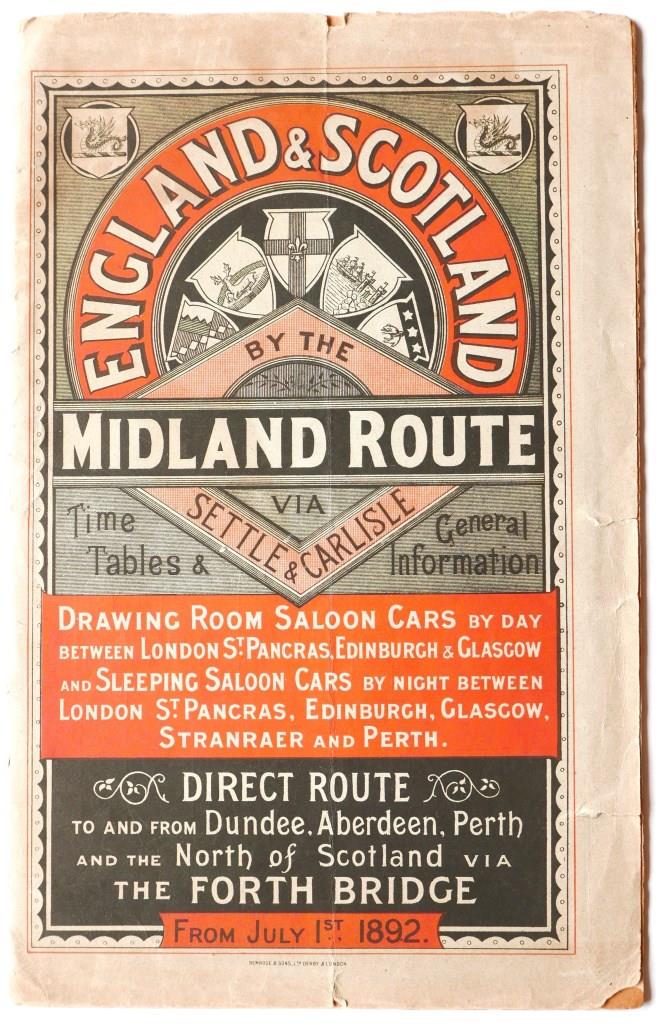 ENGLAND & SCOTLAND
BY THE
MIDLAND ROUTE
VIA
SETTLE & CARLISLE
Time
Tables &
General
Information
DRAWING ROOM SALOON CARS BY DAY
BETWEEN LONDON ST. PANCRAS, EDINBURGH & GLASGOW
AND SLEEPING SALOON CARS BY NIGHT BETWEEN
LONDON ST. PANCRAS, EDINBURGH, GLASGOW,
STRANRAER AND PERTH.
DIRECT ROUTE
TO AND FROM Dundee, Aberdeen, Perth
AND THE North of Scotland VIA
THE FORTH BRIDGE
FROM JULY 1ST. 1892.
BEMROSE & SONS, LTD. DERBY & LONDON